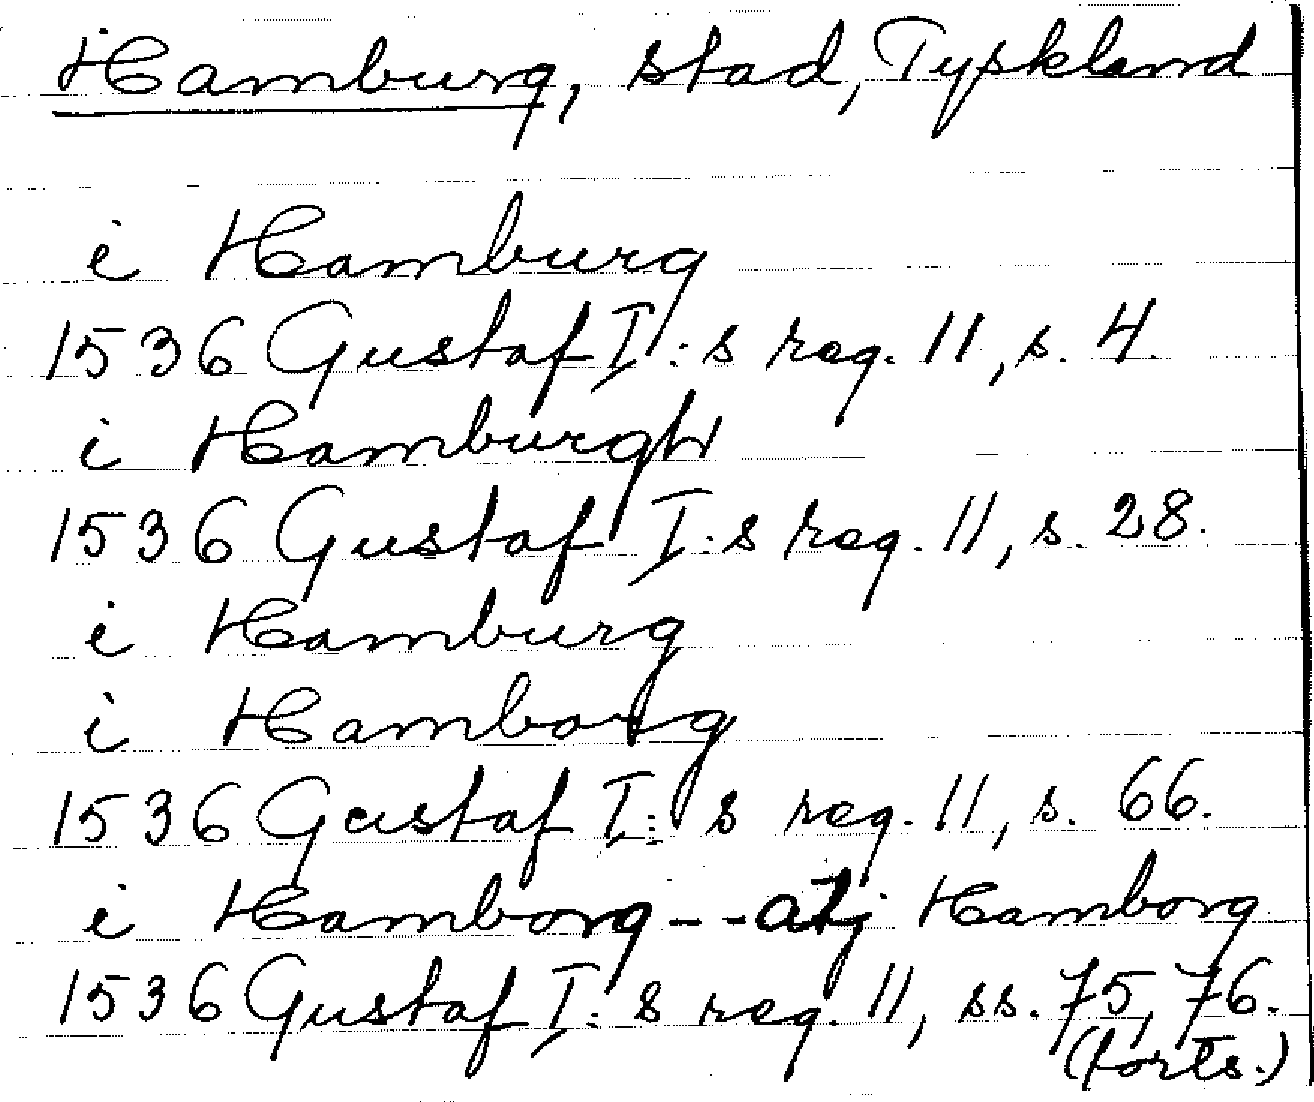 Hamburg, stad, Tyskland
i Hamburg
1536 Gustaf I:s reg. 11, s. 4.
i Hamburgh
1536 Gustaf I:s reg. 11, s. 28.
i Hamburg
i Hamborg
1536 Gustaf I:s reg. 11, s. 66.
i Hamborg -- atj Hamborg
1536 Gustaf I:s reg. 11, ss. 75, 76.
(forts.)